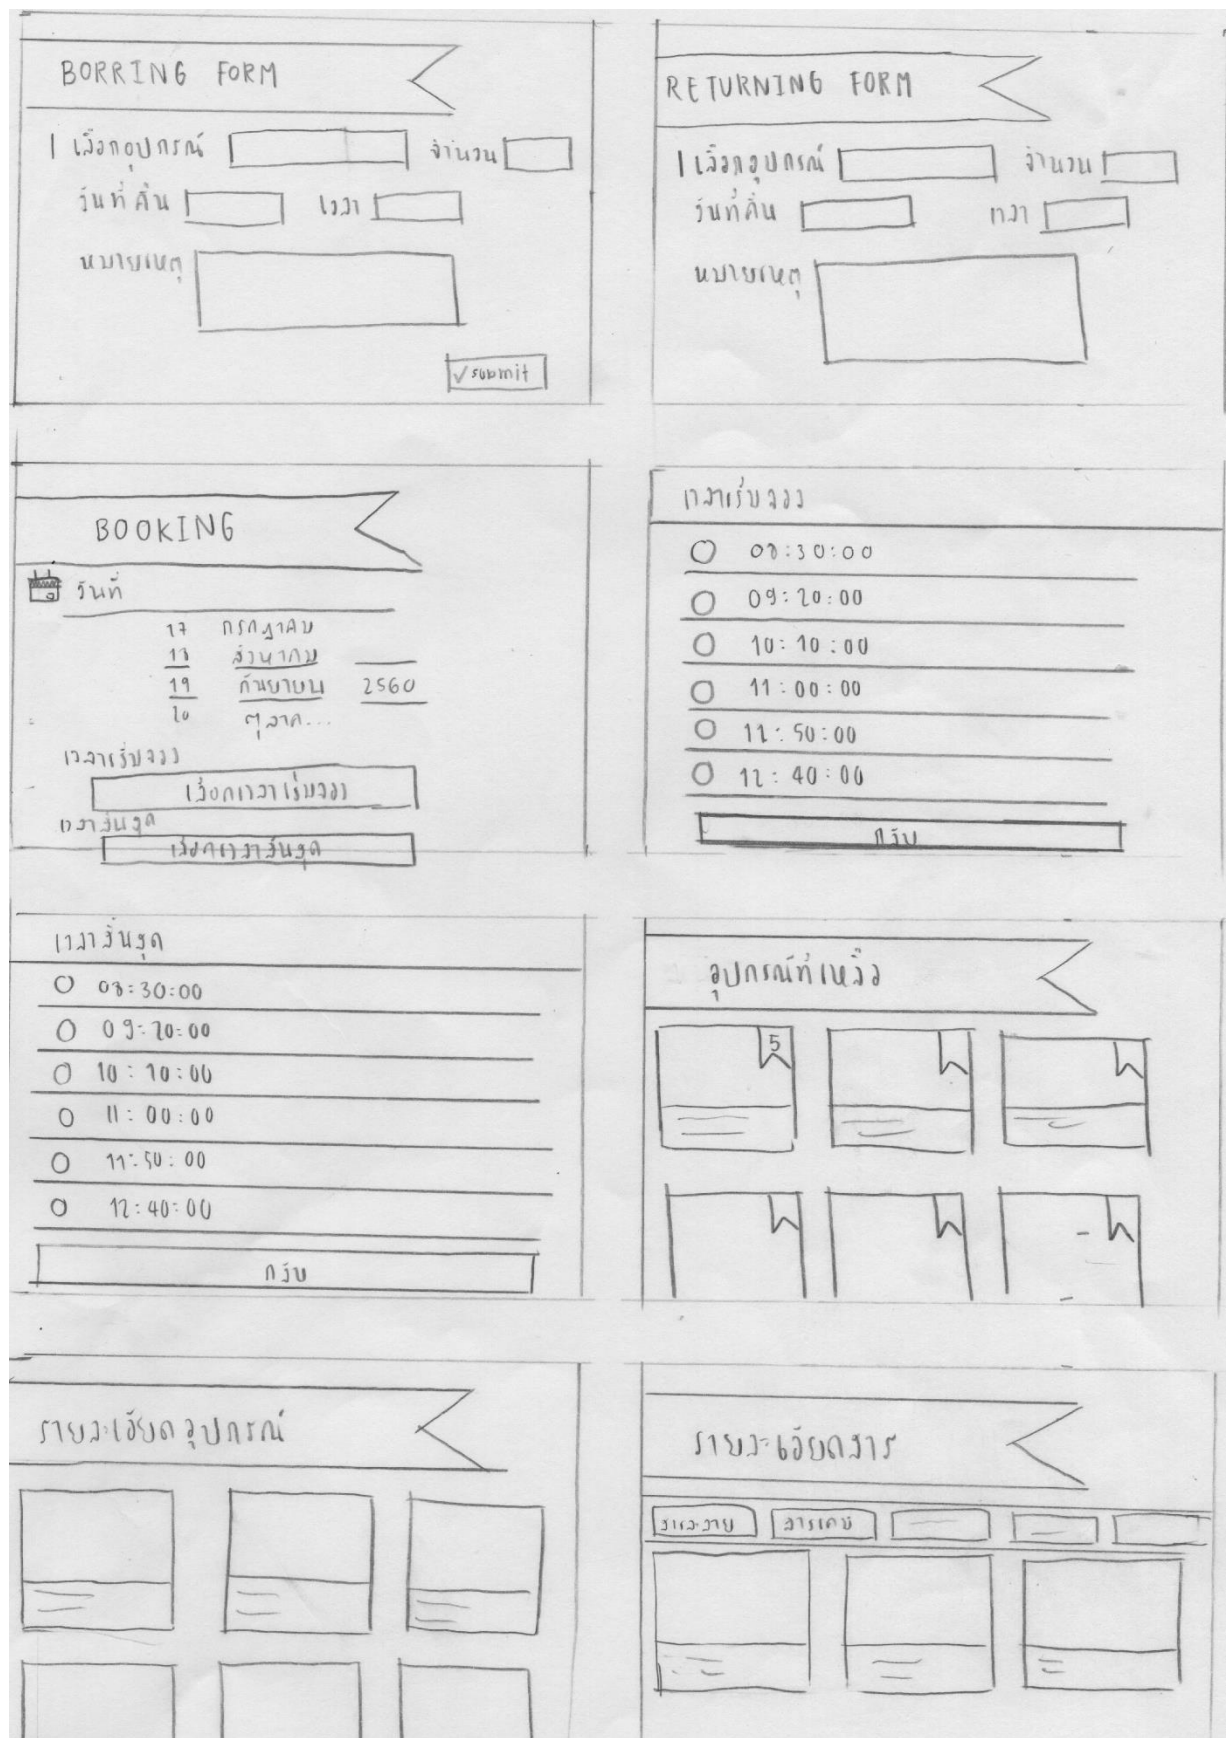 BORRING FORM
1 เลือกอุปกรณ์ จำนวน
วันที่คืน เวลา
หมายเหตุ
✓ submit
RETURNING FORM
1 เลือกอุปกรณ์ จำนวน
วันที่คืน เวลา
หมายเหตุ
BOOKING
วันที่
17 กรกฎาคม
18 สิงหาคม
19 กันยายน 2560
20 ตุลาค...
เวลาเริ่มจอง
เลือกเวลาเริ่มจอง
เวลาสิ้นสุด
เลือกเวลาสิ้นสุด
เวลาเริ่มจอง
08:30:00
09:20:00
10:10:00
11:00:00
11:50:00
12:40:00
กลับ
เวลาสิ้นสุด
08:30:00
09:20:00
10:10:00
11:00:00
11:50:00
12:40:00
กลับ
อุปกรณ์ที่เหลือ
5
รายละเอียดอุปกรณ์
รายละเอียดสาร
สารละลาย สารเคมี